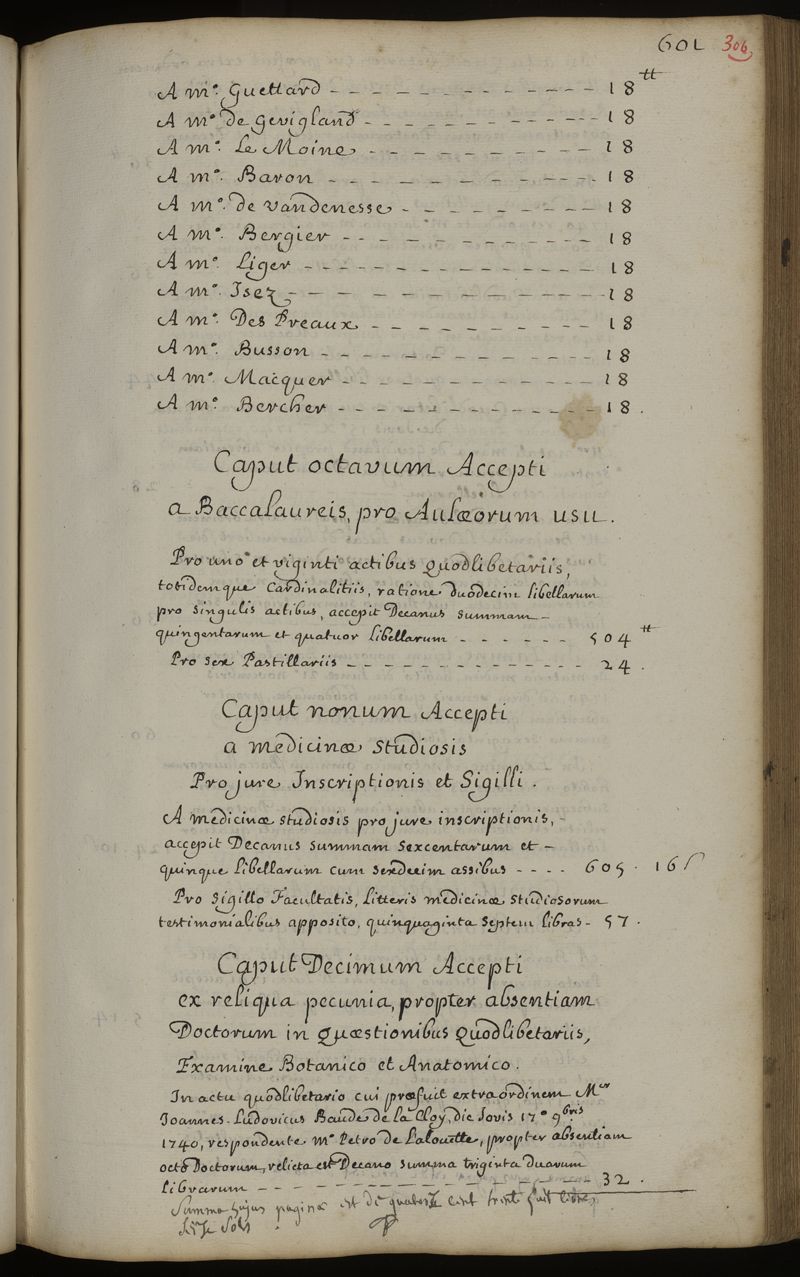 601 306
A mr. Guettard - - - - - - - - - - - - - 18 tt
A mr. de Gevigland - - - - - - - - - - - - 18
A mr. Le Moine - - - - - - - - - - - 18
A mr. Baron - - - - - - - - - - - - 18
A mr. de Vandenesse - - - - - - - - - - 18
A mr. Bergier - - - - - - - - - - - 18
A mr. Liger - - - - - - - - - - - - - 18
A mr. Isez - - - - - - - - - - - - - 18
A mr. Des Preaux - - - - - - - - - - 18
A mr. Busson - - - - - - - - - - - - - 18
A mr. Macquer - - - - - - - - - - - - 18
A mr. Bercher - - - - - - - - - - - - 18.
Caput octavum Accepti
a Baccalaureis, pro Aulæorum usu.
Pro uno et viginti actibus Quodlibetariis,
totidemque Cardinalitiis, ratione duodecim libellarum
pro singulis actibus, accepit Decanus summam -
quingentarum et quatuor libellarum - - - - - - 504 tt
Pro sex Pastillariis - - - - - - - - - - - - - 24.
Caput nonum Accepti
a medicinæ studiosis
Pro jure Inscriptionis et Sigilli.
A medicinæ studiosis pro jure inscriptionis, -
accepit Decanus summam sexcentarum et -
quinque libellarum cum sexdecim assibus - - - - 605. 16 s
Pro Sigillo Facultatis, litteris medicinæ studiosorum
testimonialibus apposito, quinquaginta septem libras - 57.
Caput Decimum Accepti
ex reliqua pecunia, propter absentiam
Doctorum in Quæstionibus Quodlibetariis,
Examine Botanico et Anatomico.
In actu quodlibetario cui præfuit extraordinem Mer
Joannes-Ludovicus Baude de la Cloy, die Jovis 17a 9bris
1740, respondente mro Petro de Lalouette, propter absentiam
octo Doctorum, relicta est Decano summa triginta duarum
librarum - - - - - - - - - - - - - - - 32.
Summa hujus paginæ est de quatorze cent trente huit livres
seize sols